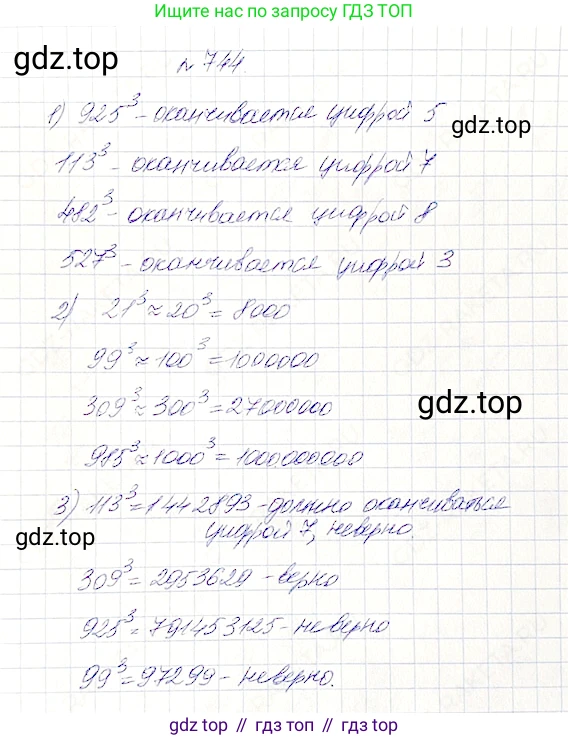 Ищите нас по запросу ГДЗ ТОП
gdz.top
№ 744.
1) 925³ - оканчивается цифрой 5
gdz.top
113³ - оканчивается цифрой 7
482³ - оканчивается цифрой 8
527³ - оканчивается цифрой 3
2) 21³ ≈ 20³ = 8000
99³ ≈ 100³ = 1000000
309³ ≈ 300³ = 27000000
gdz.top
985³ ≈ 1000³ = 1000000000
3) 113³ = 1442893 - должно оканчиваться
цифрой 7, неверно.
gdz.top
309³ = 2953629 - верно
925³ = 791453125 - неверно
99³ = 97299 - неверно.
gdz.top // гдз.топ // гдз топ